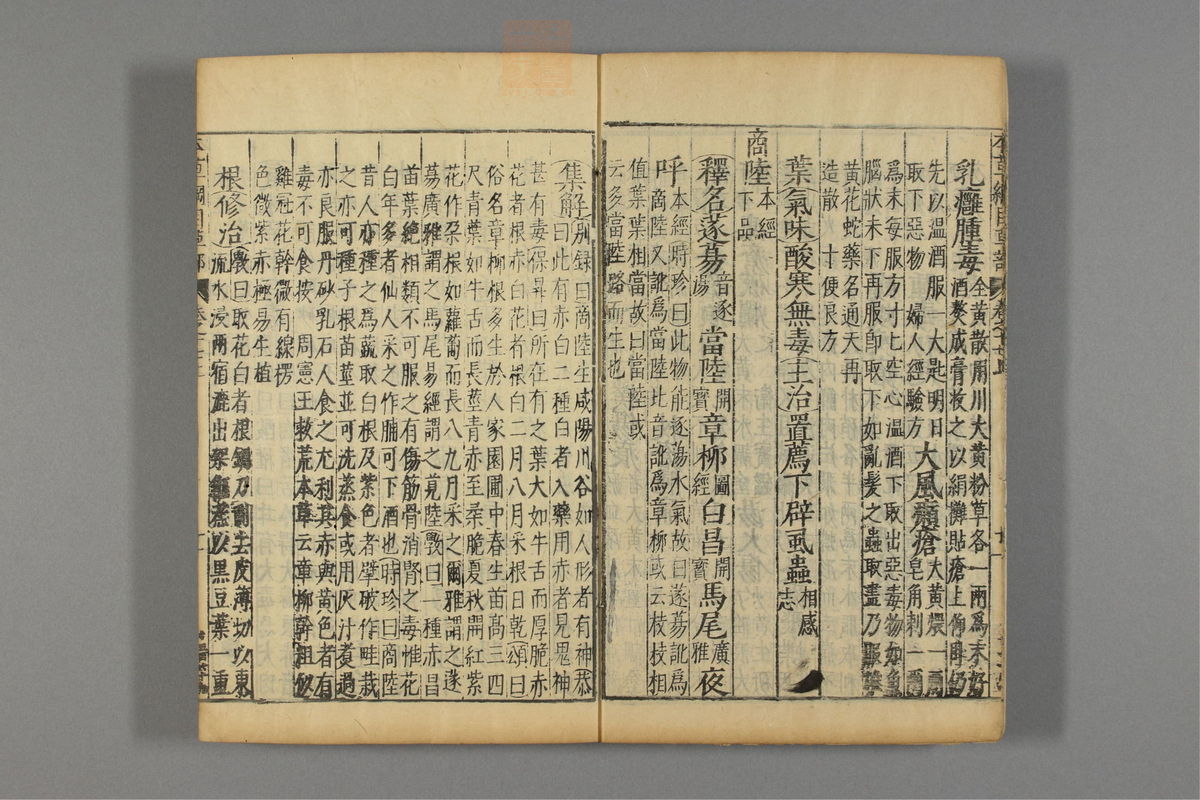 乳癰腫毒金黃散用川大黃粉草各一兩爲末好
酒熬成膏收之以絹攤貼瘡上仰臥仍
先以温酒服一大匙明日
取下惡物 婦人經驗方
大風癩瘡大黃煨一兩皂角刺一兩
爲末每服方寸匕空心温酒下取出惡毒物如魚
腦狀未下再服卽取下如亂髮之蟲取盡乃
黃花蛇藥名通天再
造散 十便良方
葉氣味酸寒無毒主治置薦下辟虱蟲相感志
商陸本經下品
釋名蓫䓪音逐湯當陸開寶章柳圖經白昌開寶馬尾廣雅夜
呼本經時珍曰此物能逐蕩水氣故曰蓫䓪訛爲
商陸又訛爲當陸北音訛爲章柳或云枝枝相
值葉葉相當故曰當陸或
云多當陸路而生也
集解別録曰商陸生咸陽川谷如人形者有神恭
曰此有赤白二種白者入藥用赤者見鬼神
甚有毒保昇曰所在有之葉大如牛舌而厚脆赤
花者根赤白花者根白二月八月采根日乾頌曰
俗名章柳根多生於人家園圃中春生苗高三四
尺青葉如牛舌而長莖青赤至柔脆夏秋開紅紫
花作朶根如蘿蔔而長八九月采之爾雅謂之蓫
䓪廣雅謂之馬尾易經謂之莧陸斆曰一種赤昌
苗葉絶相類不可服之有傷筋骨消腎之毒惟花
白年多者仙人采之作脯可下酒也時珍曰商陸
昔人亦種之爲蔬取白根及紫色者擘破作畦栽
之亦可種子根苗莖並可洗蒸食或用灰汁煮過
亦良服丹砂乳石人食之尤利其赤與黃色者有
毒不可食按周憲王救荒本草云章柳幹粗似
雞冠花幹微有線楞
色微紫赤極易生植
根修治斆曰取花白者根銅刀刮去皮薄切以東
流水浸兩宿漉出架甑蒸以黑豆葉一重